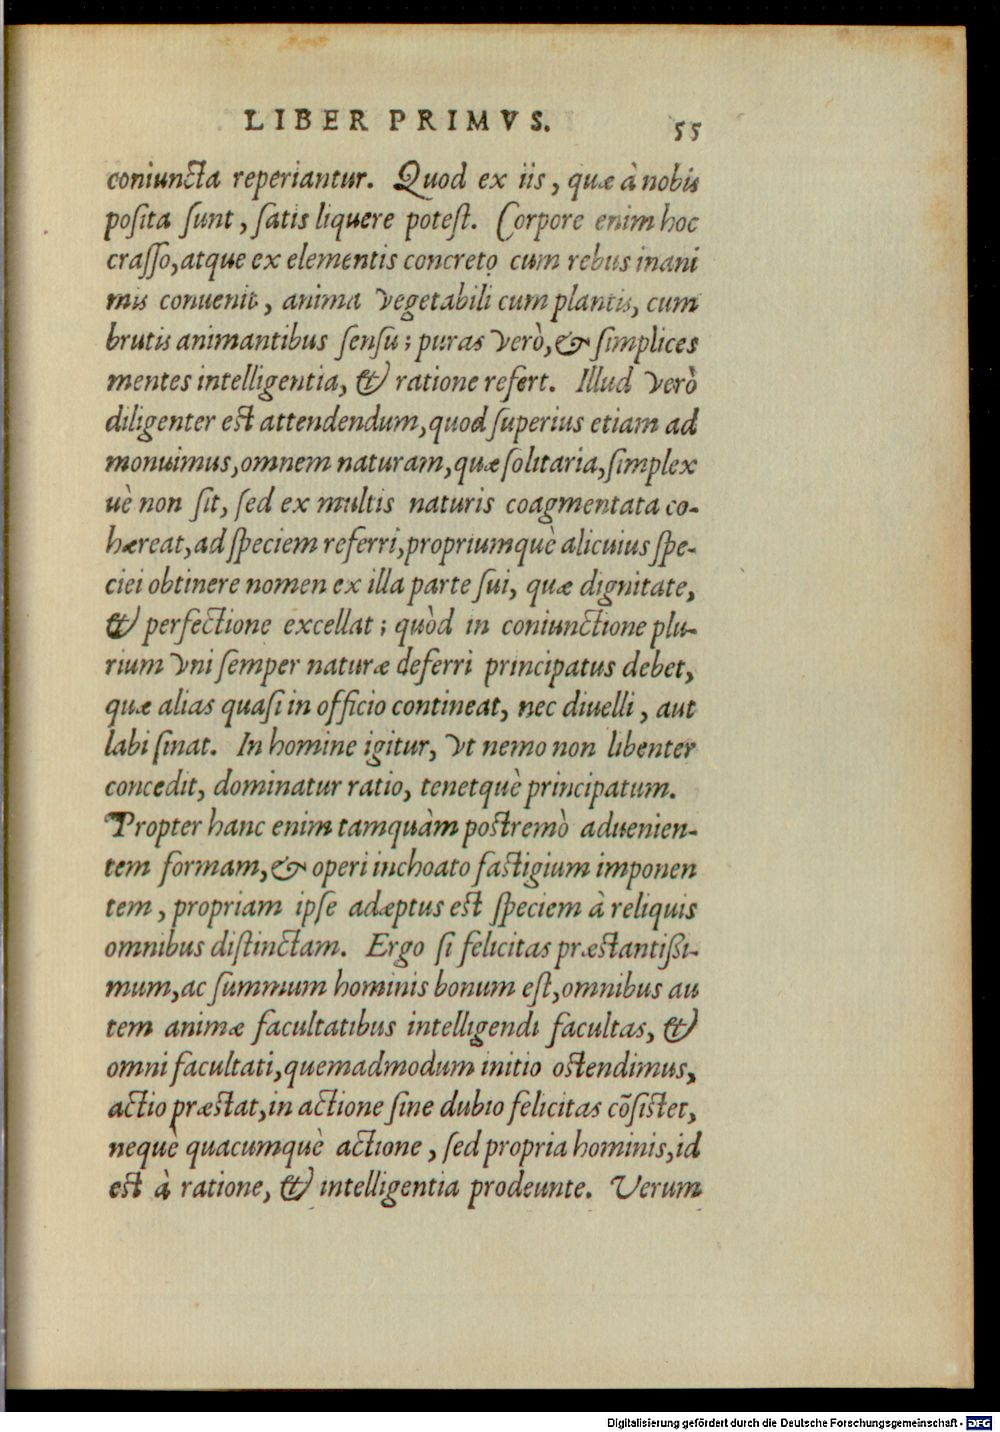 LIBER PRIMVS. 55
coniuncta reperiantur. Quod ex iis, quæ à nobis
posita sunt, satis liquere potest. Corpore enim hoc
crasso, atque ex elementis concreto cum rebus inani
mis conuenit, anima vegetabili cum plantis, cum
brutis animantibus sensu; puras verò, & simplices
mentes intelligentia, & ratione refert. Illud verò
diligenter est attendendum, quod superius etiam ad
monuimus, omnem naturam, quæ solitaria, simplex
uè non sit, sed ex multis naturis coagmentata co-
hæreat, ad speciem referri, propriumquè alicuius spe-
ciei obtinere nomen ex illa parte sui, quæ dignitate,
& perfectione excellat; quòd in coniunctione plu-
rium vni semper naturæ deferri principatus debet,
quæ alias quasi in officio contineat, nec diuelli, aut
labi sinat. In homine igitur, vt nemo non libenter
concedit, dominatur ratio, tenetquè principatum.
Propter hanc enim tamquàm postremò aduenien-
tem formam, & operi inchoato fastigium imponen
tem, propriam ipse adæptus est speciem à reliquis
omnibus distinctam. Ergo si felicitas præstantißi-
mum, ac summum hominis bonum est, omnibus au
tem animæ facultatibus intelligendi facultas, &
omni facultati, quemadmodum initio ostendimus,
actio præstat, in actione sine dubio felicitas cõsistet,
nequè quacumquè actione, sed propria hominis, id
est à ratione, & intelligentia prodeunte. Verum
Digitalisierung gefördert durch die Deutsche Forschungsgemeinschaft - DFG